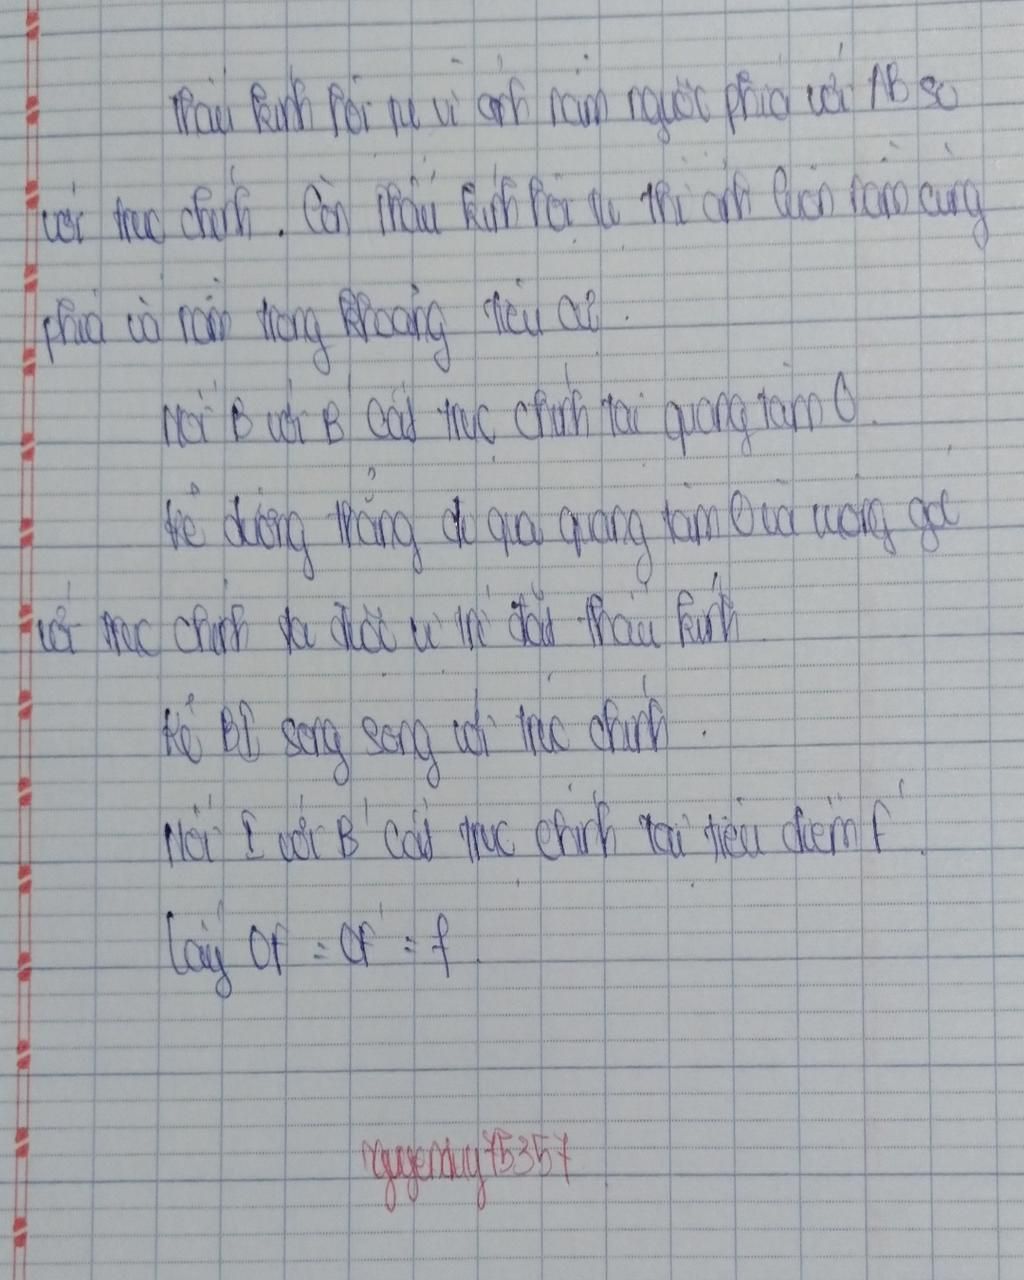 Thấu kính hội tụ vì ảnh nằm ngược phía với AB so
với trục chính. Còn thấu kính hội tụ thì ảnh luôn nằm cùng
phía và nằm trong khoảng tiêu cự.
Nối B với B' cắt trục chính tại quang tâm O.
Kẻ đường thẳng đi qua quang tâm O và vuông góc
với trục chính ta được vị trí đặt thấu kính
Kẻ BI song song với trục chính.
Nối I với B' cắt trục chính tại tiêu điểm F'.
Lấy OF = OF' = f.
nguyenduy75357